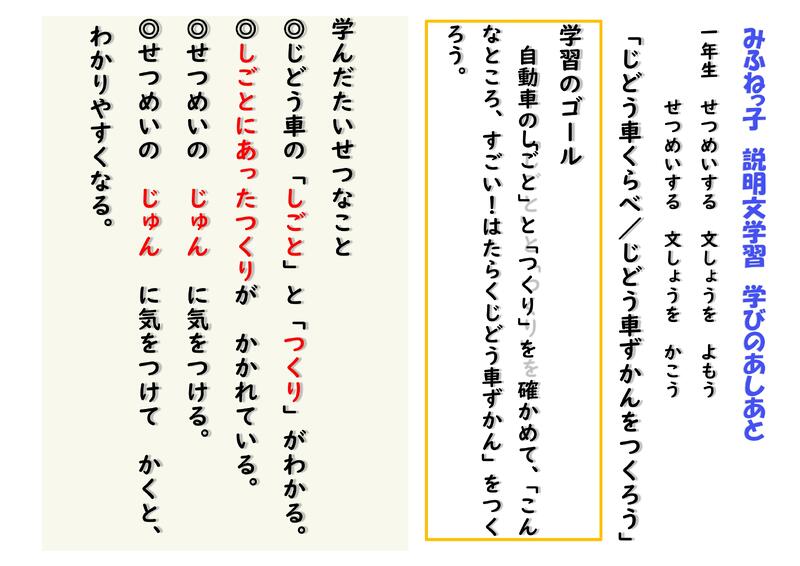 みふねっ子　説明文学習　学びのあしあと
一年生　せつめいする　文しょうを　よもう
せつめいする　文しょうを　かこう
「じどう車くらべ／じどう車ずかんをつくろう」
学習のゴール
自動車のしごと」と「つくり」を確かめて、「こん
なところ、すごい！はたらくじどう車ずかん」をつく
ろう。
学んだたいせつなこと
◎じどう車の「しごと」と「つくり」がわかる。
◎しごとにあったつくりが　かかれている。
◎せつめいの　じゅん　に気をつける。
◎せつめいの　じゅん　に気をつけて　かくと、
わかりやすくなる。